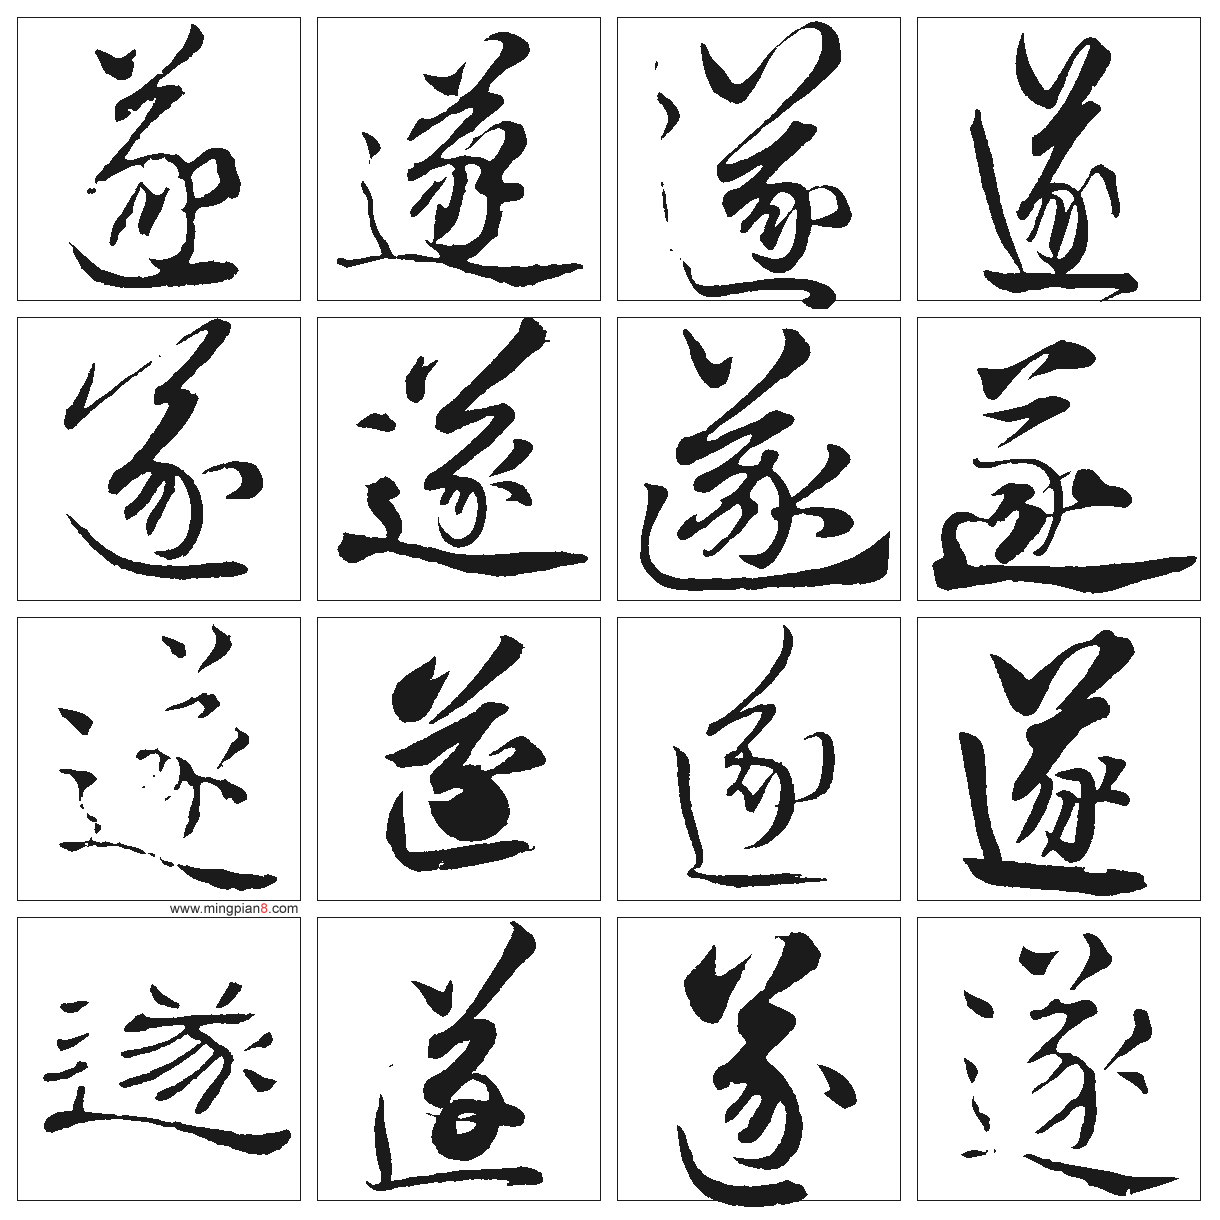 遂 遂 遂 遂
遂 遂 遂 遂
遂 遂 遂 遂
www.mingpian8.com
遂 遂 遂 遂